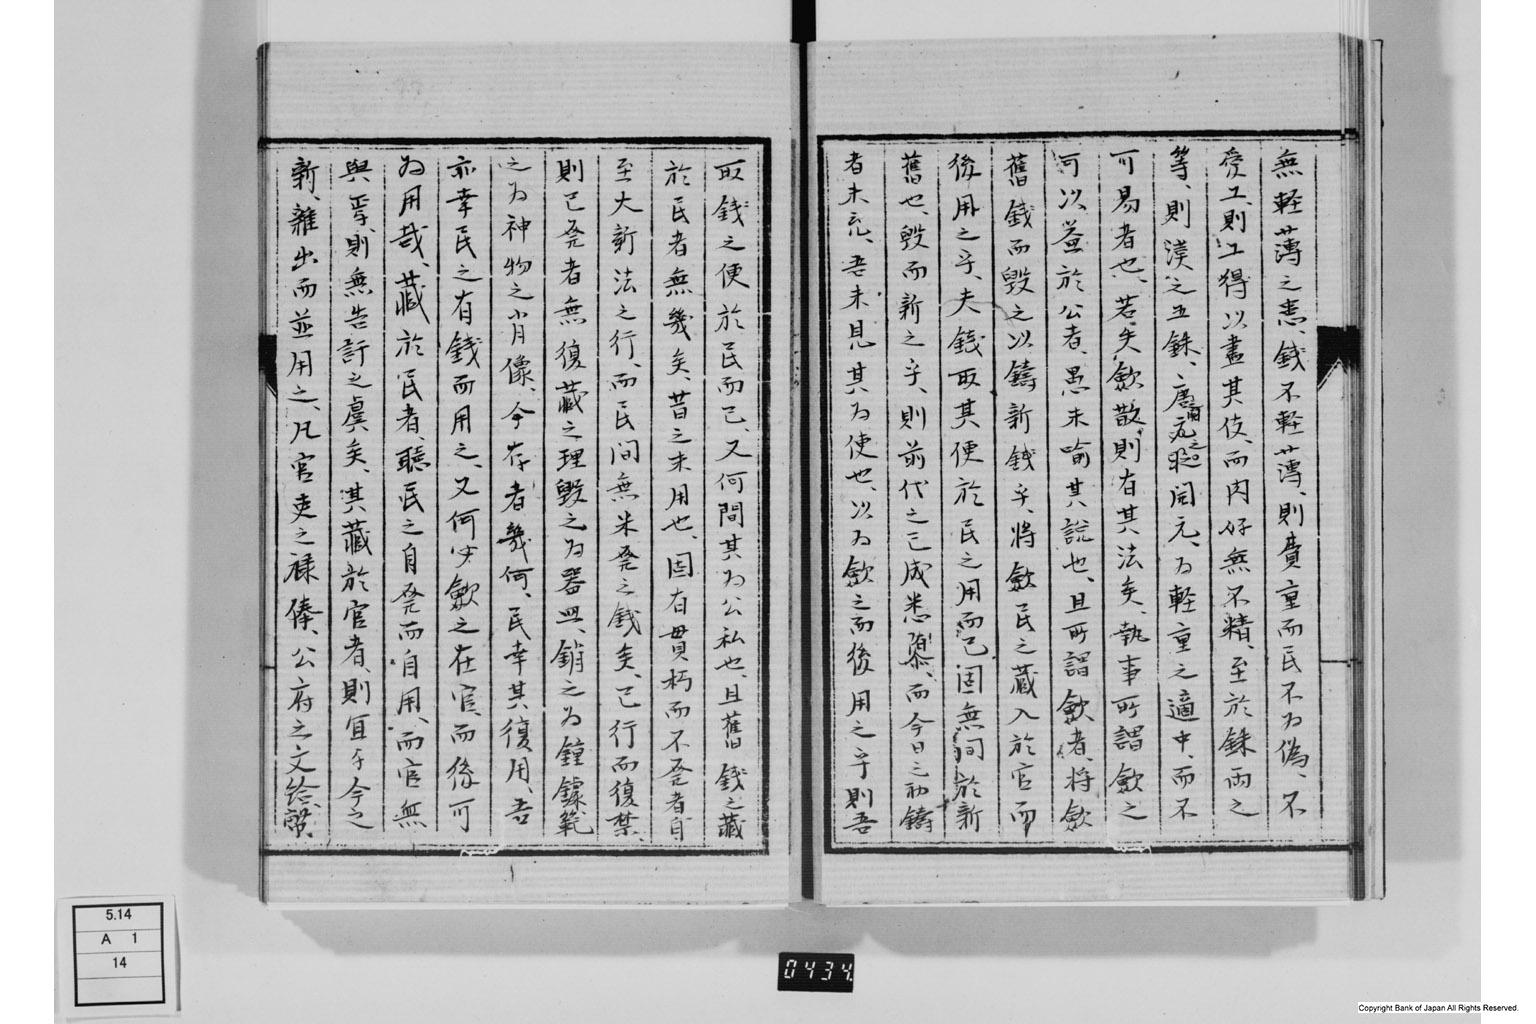 無軽薄之恚、錢不軽薄、則費重而民不为偽、不
愛工、則工得以盡其伎、而肉好無不精、至於銖両之
等、則漢之五銖、唐之開元、为軽重之適中、而不
可易者也、若夫斂散、則有其法矣、執事所謂斂之
可以益於公者、愚未喻其説也、且所謂斂者、将斂
舊錢而毀之以鑄新錢乎、将斂民之蔵入於官而
後用之乎、夫錢取其便於民之用而已、固無間於新
舊也、毀而新之乎、則前代之已成悉隳、而今日之初鑄
者未充、吾未見其为便也、以为斂之而後用之乎則吾
取錢之便於民而已、又何間其为公私也、且舊錢之蔵
於民者無幾矣、昔之未用也、固有貫朽而不発者、自
至大新法之行、而民間無未発之錢矣、已行而復禁、
則已発者無復蔵之理、毀之为器皿、銷之为鐘鏶範
之为神物之肖像、今存者幾何、民幸其復用、吾
亦幸民之有錢而用之、又何必斂之在官、而後可
为用哉、蔵於民者、聴民之自発而自用、而官無
與焉、則無告訐之虞矣、其蔵於官者、則宜于今之
新、雜出而並用之、凡官吏之禄俸、公府之文給
5.14
A 1
14
0434.
Copyright Bank of Japan All Rights Reserved.